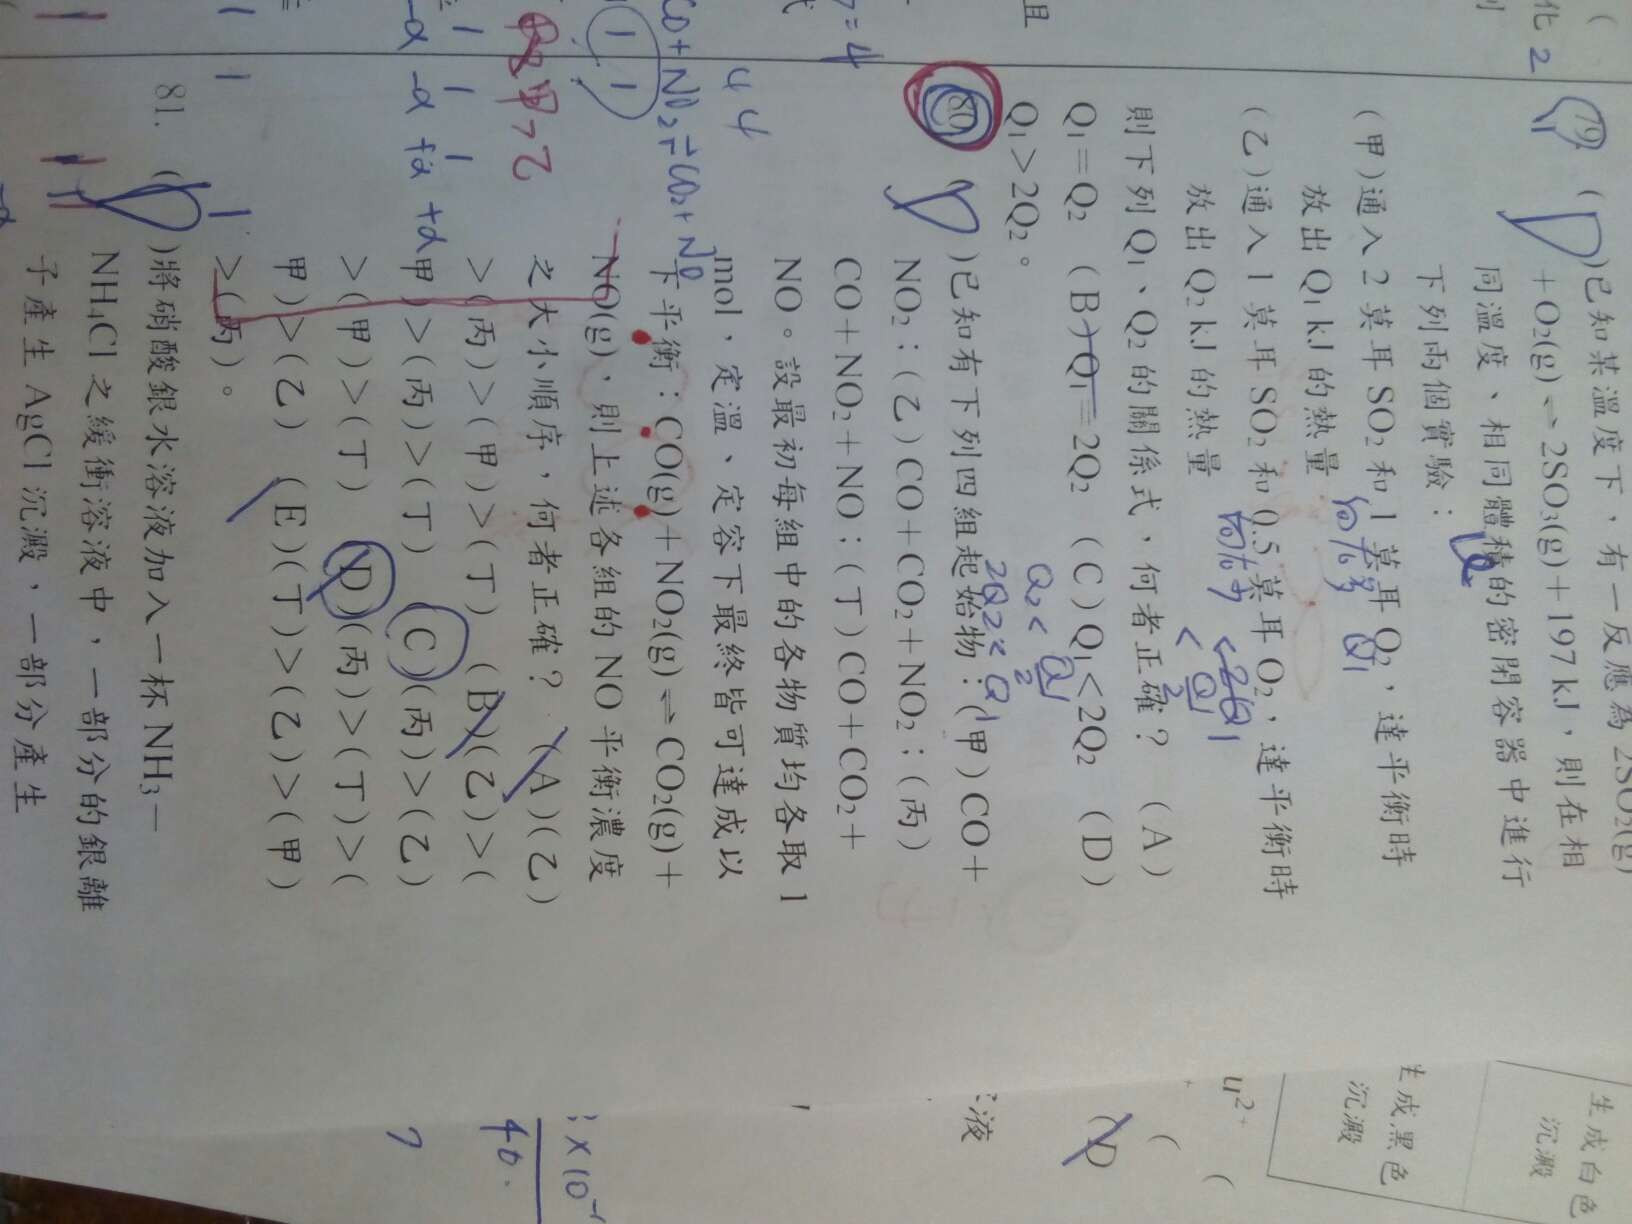 化 2
且
79 ( D )已知某溫度下，有一反應為 2SO₂(g)
+O₂(g)⇌2SO₃(g)+197 kJ，則在相
同溫度、相同體積的密閉容器中進行
下列兩個實驗：
(甲)通入 2 莫耳 SO₂ 和 1 莫耳 O₂，達平衡時
放出 Q₁ kJ 的熱量
(乙)通入 1 莫耳 SO₂ 和 0.5 莫耳 O₂，達平衡時
放出 Q₂ kJ 的熱量
則下列 Q₁、Q₂ 的關係式，何者正確？ (A)
Q₁=Q₂ (B) Q₁=2Q₂ (C) Q₁<2Q₂ (D)
Q₁>2Q₂。
Q₁
Q₂ < Q₁
2
2Q₂ < Q₁
< Q₁
2
80 ( D )已知有下列四組起始物：(甲)CO+
NO₂；(乙)CO+CO₂+NO₂；(丙)
CO+NO₂+NO；(丁)CO+CO₂+
NO。設最初每組中的各物質均各取 1
mol，定溫、定容下最終皆可達成以
下平衡：CO(g)+NO₂(g)⇌CO₂(g)+
NO(g)，則上述各組的 NO 平衡濃度
之大小順序，何者正確？ (A)(乙)
>(丙)>(甲)>(丁) (B)(乙)>(
甲)>(丙)>(丁) (C)(丙)>(乙)
>(甲)>(丁) (D)(丙)>(丁)>(
甲)>(乙) (E)(丁)>(乙)>(甲)
>(丙)。
=4
4 4
CO+NO₂⇌CO₂+NO
1 1
甲>乙
1 1 1
-α -α +α +α
1 1 1
81. ( D )將硝酸銀水溶液加入一杯 NH₃－
NH₄Cl 之緩衝溶液中，一部分的銀離
子產生 AgCl 沉澱，一部分產生
生成白色
沉澱
生成黑色
沉澱
u²⁺
(D
液
×10⁻
40.
7